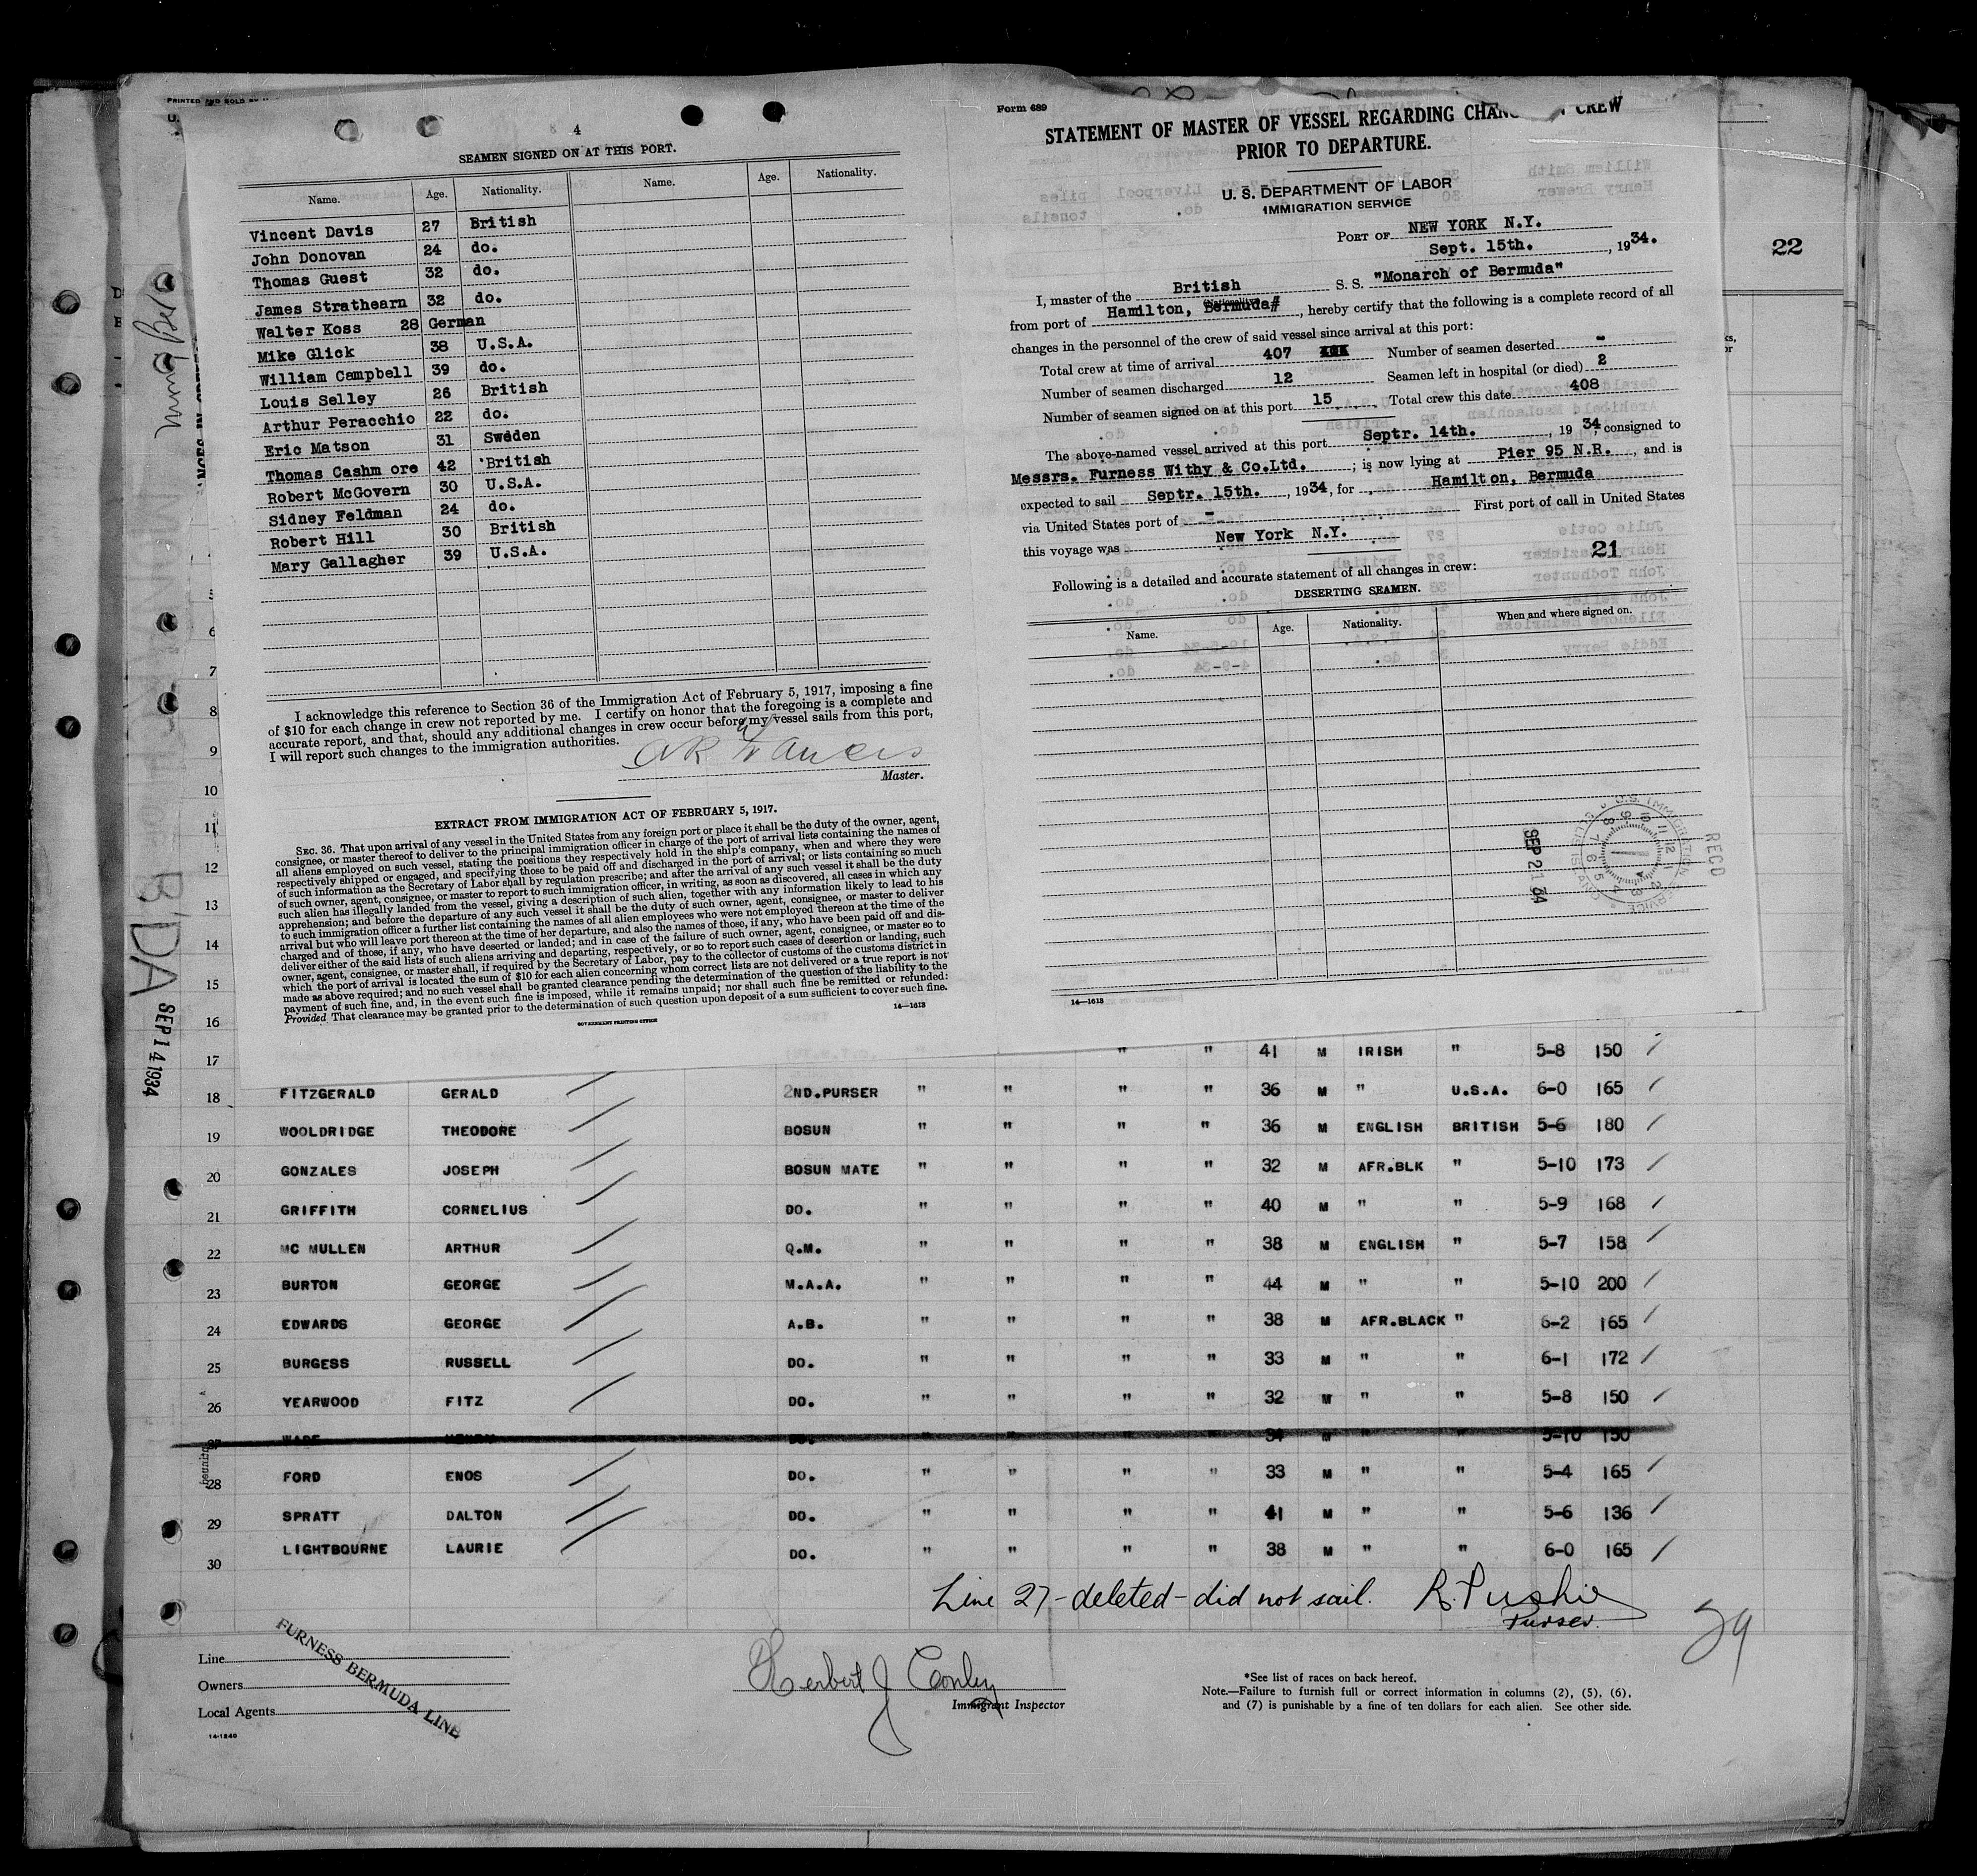 PRINTED AND SOLD BY
4
SEAMEN SIGNED ON AT THIS PORT.
Name. Age. Nationality. Name. Age. Nationality.
Vincent Davis 27 British
John Donovan 24 do.
Thomas Guest 32 do.
James Strathearn 32 do.
Walter Koss 28 German
Mike Glick 38 U.S.A.
William Campbell 39 do.
Louis Selley 26 British
Arthur Peracchio 22 do.
Eric Matson 31 Sweden
Thomas Cashm ore 42 British
Robert McGovern 30 U.S.A.
Sidney Feldman 24 do.
Robert Hill 30 British
Mary Gallagher 39 U.S.A.
I acknowledge this reference to Section 36 of the Immigration Act of February 5, 1917, imposing a fine
of $10 for each change in crew not reported by me. I certify on honor that the foregoing is a complete and
accurate report, and that, should any additional changes in crew occur before my vessel sails from this port,
I will report such changes to the immigration authorities.
Master.
EXTRACT FROM IMMIGRATION ACT OF FEBRUARY 5, 1917.
SEC. 36. That upon arrival of any vessel in the United States from any foreign port or place it shall be the duty of the owner, agent,
consignee, or master thereof to deliver to the principal immigration officer in charge of the port of arrival lists containing the names of
all aliens employed on such vessel, stating the positions they respectively hold in the ship's company, when and where they were
respectively shipped or engaged, and specifying those to be paid off and discharged in the port of arrival; or lists containing so much
of such information as the Secretary of Labor shall by regulation prescribe; and after the arrival of any such vessel it shall be the duty
of such owner, agent, consignee, or master to report to such immigration officer, in writing, as soon as discovered, all cases in which any
such alien has illegally landed from the vessel, giving a description of such alien, together with any information likely to lead to his
apprehension; and before the departure of any such vessel it shall be the duty of such owner, agent, consignee, or master to deliver
to such immigration officer a further list containing the names of all alien employees who were not employed thereon at the time of the
arrival but who will leave port thereon at the time of her departure, and also the names of those, if any, who have been paid off and dis-
charged and of those, if any, who have deserted or landed; and in case of the failure of such owner, agent, consignee, or master so to
deliver either of the said lists of such aliens arriving and departing, respectively, or so to report such cases of desertion or landing, such
owner, agent, consignee, or master shall, if required by the Secretary of Labor, pay to the collector of customs of the customs district in
which the port of arrival is located the sum of $10 for each alien concerning whom correct lists are not delivered or a true report is not
made as above required; and no such vessel shall be granted clearance pending the determination of the question of the liability to the
payment of such fine, and, in the event such fine is imposed, while it remains unpaid; nor shall such fine be remitted or refunded:
Provided That clearance may be granted prior to the determination of such question upon deposit of a sum sufficient to cover such fine.
GOVERNMENT PRINTING OFFICE 14—1613
Form 689
STATEMENT OF MASTER OF VESSEL REGARDING CHAN CREW
PRIOR TO DEPARTURE.
U. S. DEPARTMENT OF LABOR
IMMIGRATION SERVICE
PORT OF NEW YORK N.Y.
Sept. 15th. , 1934.
I, master of the British S. S. "Monarch of Bermuda"
(Nationality)
from port of Hamilton, Bermuda# , hereby certify that the following is a complete record of all
changes in the personnel of the crew of said vessel since arrival at this port:
Total crew at time of arrival 407 Number of seamen deserted -
Number of seamen discharged 12 Seamen left in hospital (or died) 2
Number of seamen signed on at this port 15 Total crew this date 408
The above-named vessel arrived at this port Septr. 14th. , 19 34, consigned to
Messrs. Furness Withy & Co.Ltd. ; is now lying at Pier 95 N.R. , and is
expected to sail Septr. 15th. , 1934, for Hamilton, Bermuda
via United States port of - First port of call in United States
this voyage was New York N.Y.
21
Following is a detailed and accurate statement of all changes in crew:
DESERTING SEAMEN.
Name. Age. Nationality. When and where signed on.
REC'D
U.S. IMMIGRATION SERVICE
ELLIS ISLAND
SEP 21 34
14—1613
22
B'DA
SEP 14 1934
5
6
7
8
9
10
11
12
13
14
15
16
17 " " 41 M IRISH " 5-8 150
18 FITZGERALD GERALD 2ND.PURSER " " " " 36 M " U.S.A. 6-0 165
19 WOOLDRIDGE THEODORE BOSUN " " " " 36 M ENGLISH BRITISH 5-6 180
20 GONZALES JOSEPH BOSUN MATE " " " " 32 M AFR.BLK " 5-10 173
21 GRIFFITH CORNELIUS DO. " " " " 40 M " " 5-9 168
22 MC MULLEN ARTHUR Q.M. " " " " 38 M ENGLISH " 5-7 158
23 BURTON GEORGE M.A.A. " " " " 44 M " " 5-10 200
24 EDWARDS GEORGE A.B. " " " " 38 M AFR.BLACK " 6-2 165
25 BURGESS RUSSELL DO. " " " " 33 M " " 6-1 172
26 YEARWOOD FITZ DO. " " " " 32 M " " 5-8 150
27 WADE HENRY DO. " " " " 34 M " " 5-10 150
28 FORD ENOS DO. " " " " 33 M " " 5-4 165
29 SPRATT DALTON DO. " " " " 41 M " " 5-6 136
30 LIGHTBOURNE LAURIE DO. " " " " 38 M " " 6-0 165
Line 27 - deleted - did not sail. R. Pushie
Purser.
29
Line
Owners
Local Agents
FURNESS BERMUDA LINE
14-1240
Herbert J Conley
Immigrant Inspector
*See list of races on back hereof.
Note.—Failure to furnish full or correct information in columns (2), (5), (6),
and (7) is punishable by a fine of ten dollars for each alien. See other side.